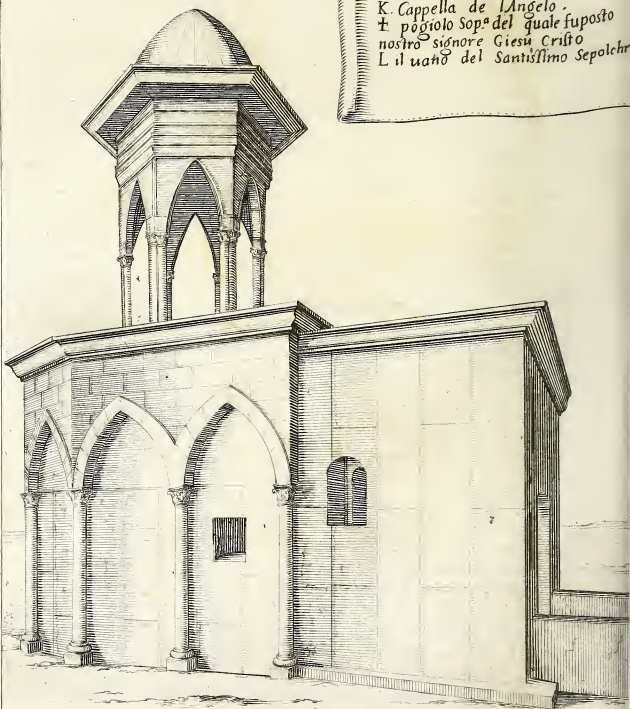 K. Cappella de lAngelo.
‡ pogiolo Sop.ª del quale fuposto
nostro signore Giesù Cristo
L il uano del Santissimo